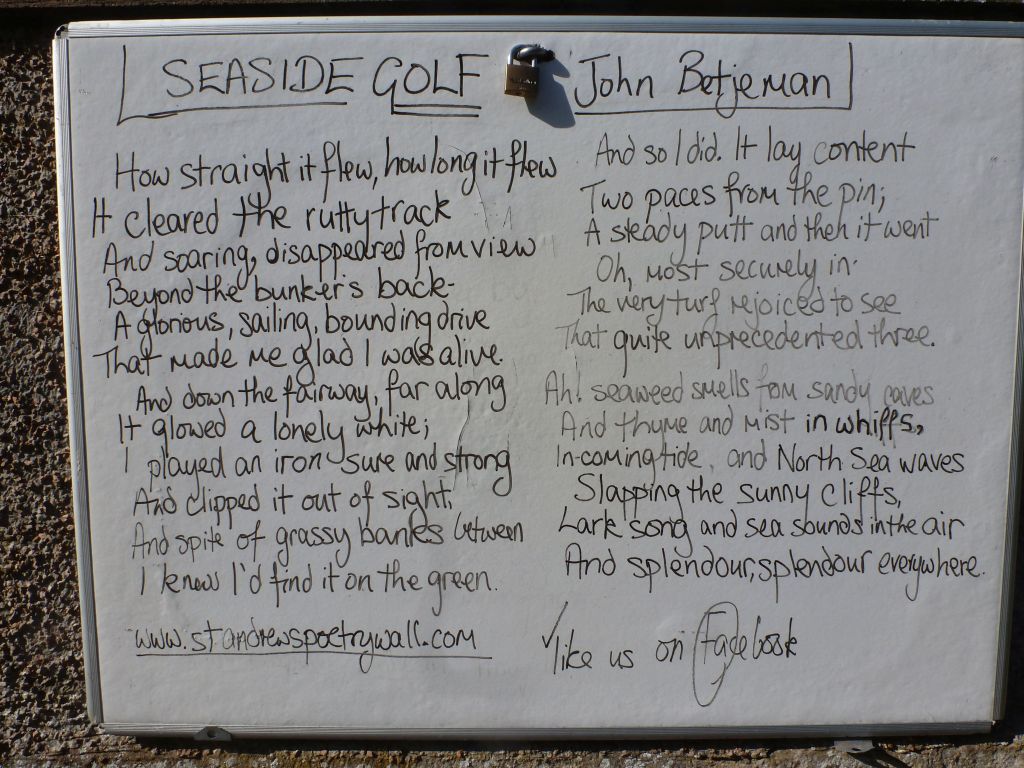 SEASIDE GOLF
John Betjeman
How straight it flew, how long it flew
It cleared the rutty track
And soaring, disappeared from view
Beyond the bunker's back-
A glorious, sailing, bounding drive
That made me glad I was alive.
And down the fairway, far along
It glowed a lonely white;
I played an iron sure and strong
And clipped it out of sight,
And spite of grassy banks between
I knew I'd find it on the green.
www.standrewspoetrywall.com
And so I did. It lay content
Two paces from the pin;
A steady putt and then it went
Oh, most securely in.
The very turf rejoiced to see
That quite unprecedented three.
Ah! seaweed smells fom sandy caves
And thyme and mist in whiffs,
In-coming tide, and North Sea waves
Slapping the sunny cliffs,
Lark song and sea sounds in the air
And splendour, splendour everywhere.
like us on Facebook